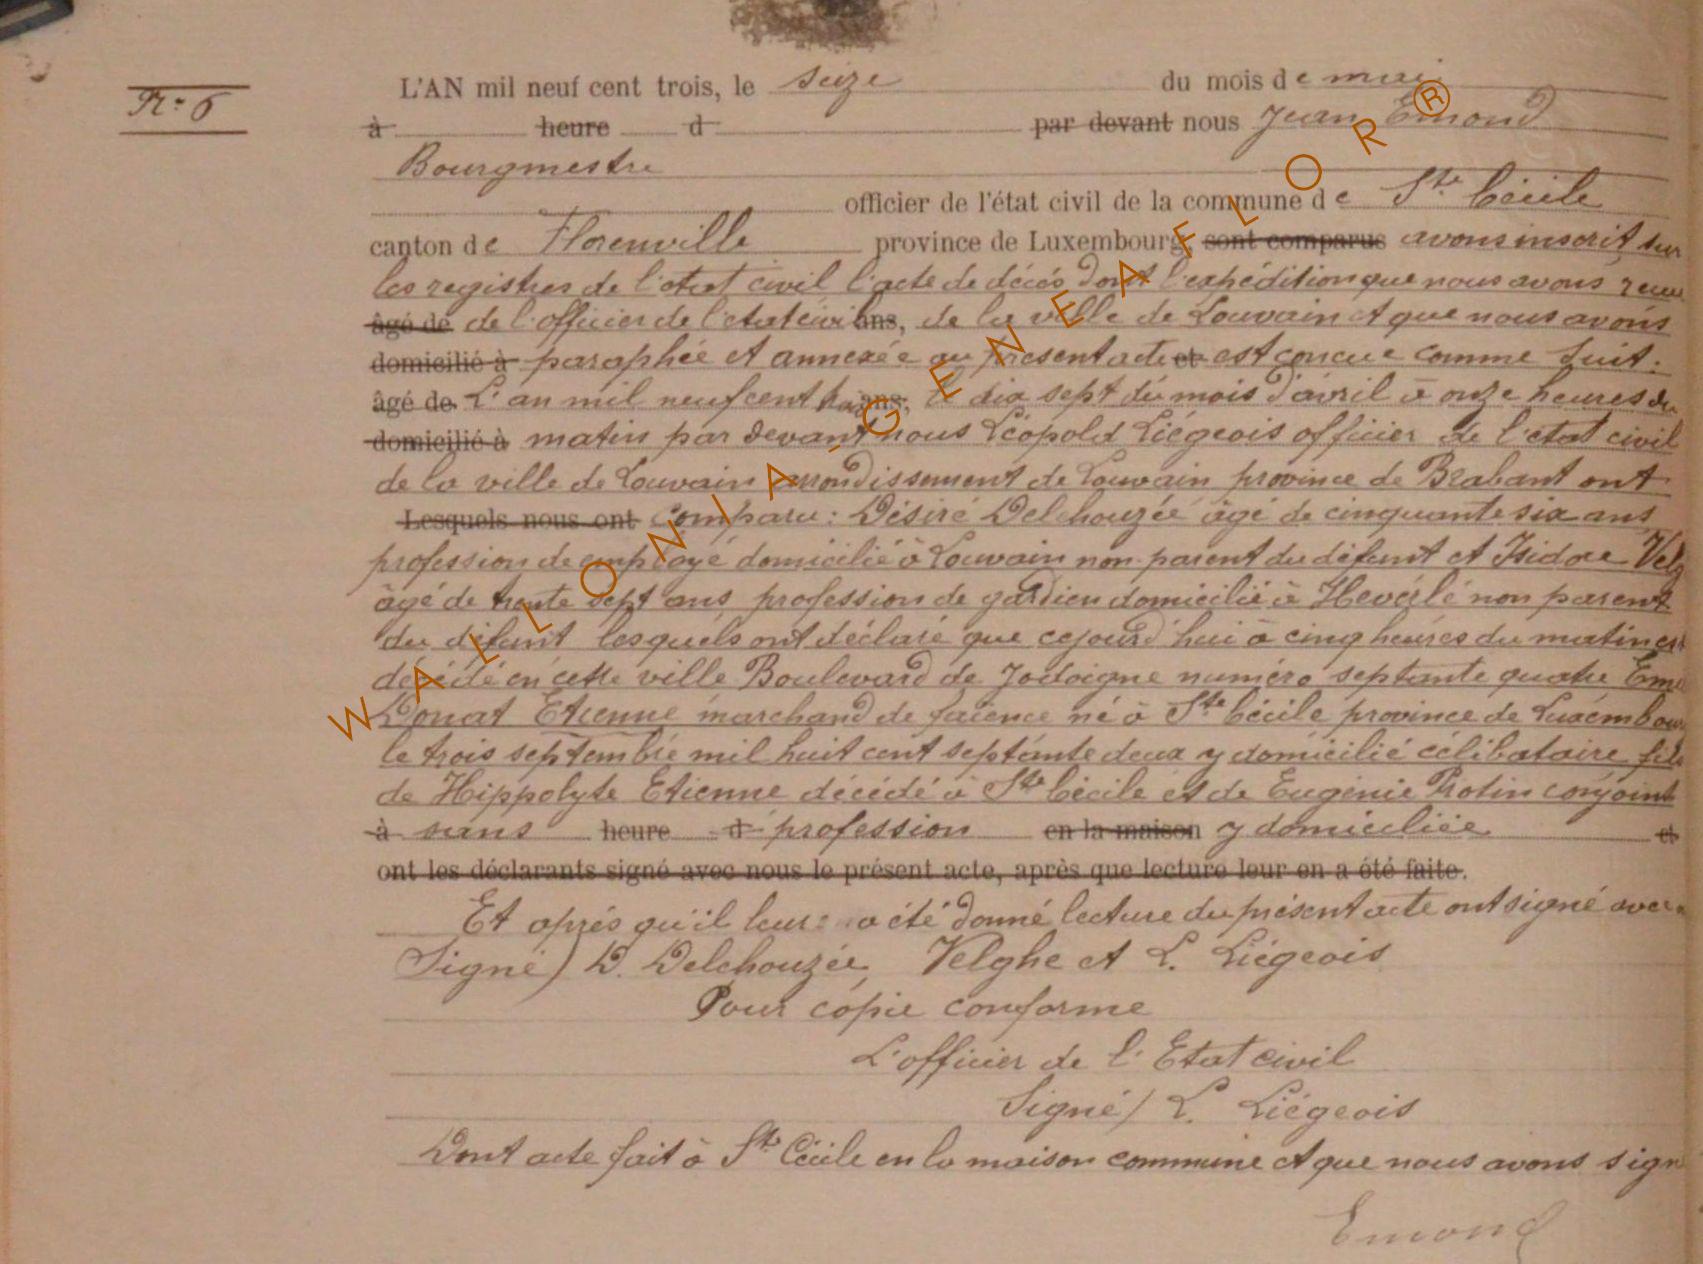 N° 6
L'AN mil neuf cent trois, le seize du mois de mai
à heure d par devant nous Jean Emond
Bourgmestre
officier de l'état civil de la commune de Ste Cécile
canton de Florenville province de Luxembourg, sont comparus avons inscrit sur
les registres de l'etat civil l'acte de décés dont l'expédition que nous avons recue
âgé de de l'officier de l'etat civil ans, de la ville de Louvain et que nous avons
domicilié à paraphée et annexée au présent acte et est concue comme suit :
âgé de L'an mil neuf cent trois ans, le dix sept du mois d'avril à onze heures du
domicilié à matin par devant nous Léopold Liégeois officier de l'état civil
de la ville de Louvain arrondissement de Louvain province de Brabant ont
Lesquels nous ont comparu : Désiré Delchouzée âgé de cinquante six ans
profession de employé domicilié à Louvain non parent du défunt et Isidore Velg
âgé de trente sept ans profession de gardien domicilié à Heverlé non parent
du défunt lesquels ont déclaré que cejourd'hui à cinq heures du matin est
décédé en cette ville Boulevard de Jodoigne numéro septante quatre
Donat Etienne marchand de faïence né à Ste Cécile province de Luxembourg
le trois septembre mil huit cent septante deux y domicilié célibataire fils
de Hippolyte Etienne décédé à Ste Cécile et de Eugénie Protin conjoint
à sans heure d profession en la maison y domiciliée et
ont les déclarants signé avec nous le présent acte, après que lecture leur en a été faite.
Et aprés qu'il leur a été donné lecture du présent acte ont signé avec
Signé) D. Delchouzée, Velghe et L. Liégeois
Pour copie conforme
L'officier de l'Etat civil
Signé/ L. Liégeois
Dont acte fait à Ste Cécile en la maison commune et que nous avons sign
Emond
WALLONIA-GENEAFLOR®